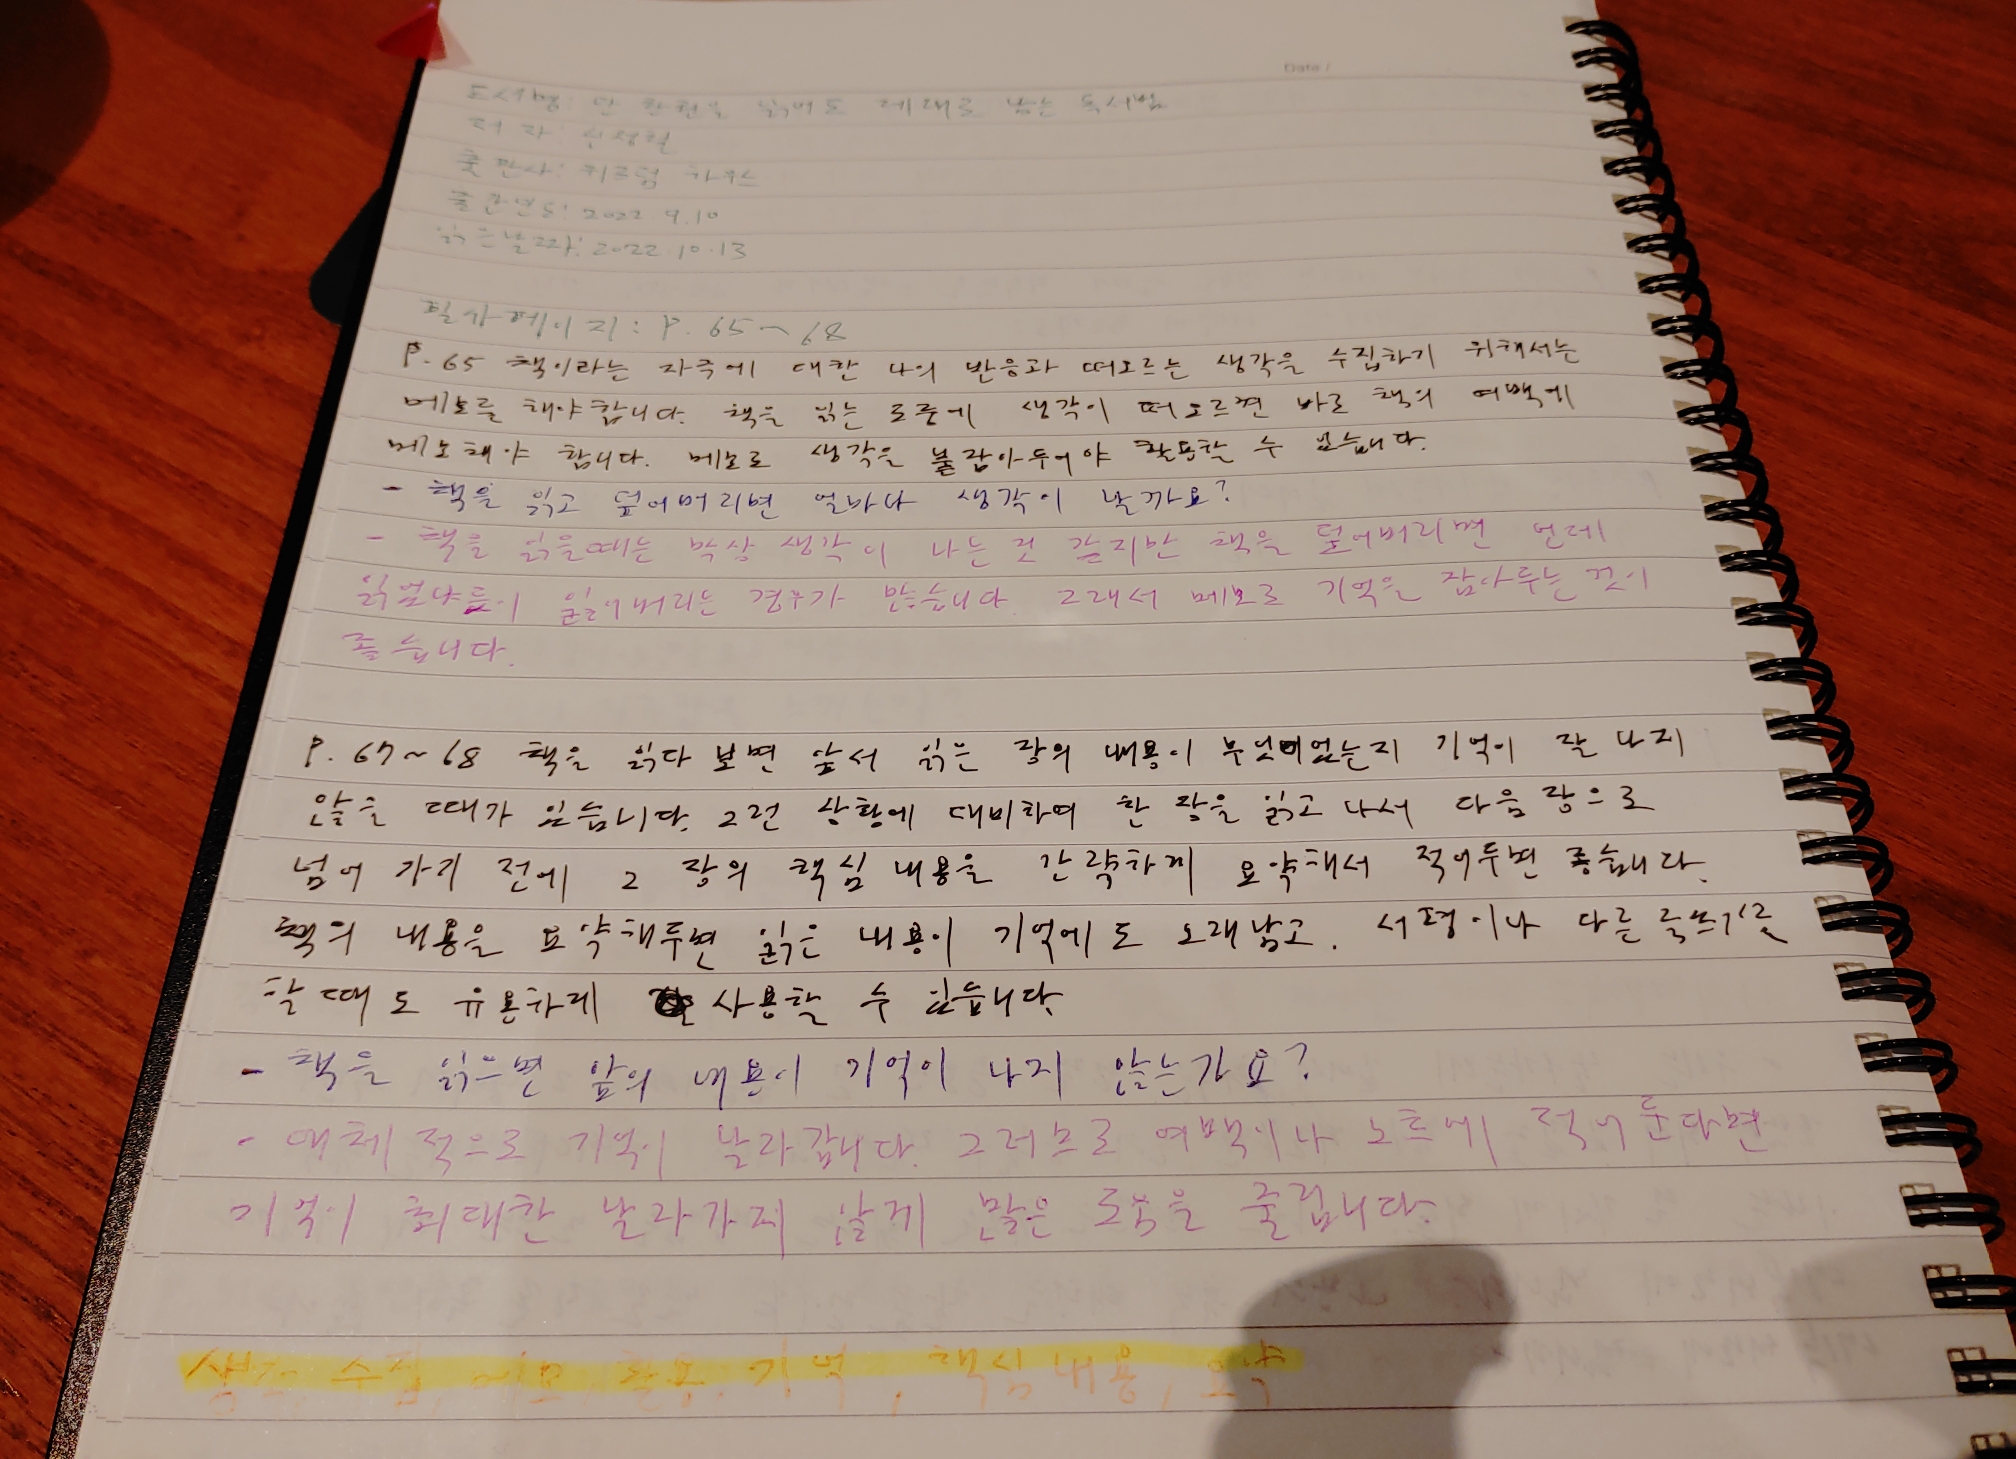 Date /
도서명: 단 한권을 읽어도 제대로 남는 독서법
저 자:
출판사: 위즈덤 하우스
출간연도: 2022. 9. 10
읽은날짜: 2022. 10. 13
필사페이지: P. 65~68
P. 65 책이라는 자극에 대한 나의 반응과 떠오르는 생각을 수집하기 위해서는
메모를 해야합니다. 책을 읽는 도중에 생각이 떠오르면 바로 책의 여백에
메모해야 합니다. 메모로 생각을 붙잡아두어야 활용할 수 있습니다.
- 책을 읽고 덮어버리면 얼마나 생각이 날까요?
- 책을 읽을때는 막상 생각이 나는 것 같지만 책을 덮어버리면 언제
읽었냐듯이 잃어버리는 경우가 많습니다. 그래서 메모로 기억을 잡아두는 것이
좋습니다.
P. 67~68 책을 읽다 보면 앞서 읽은 장의 내용이 무엇이었는지 기억이 잘 나지
않을 때가 있습니다. 그런 상황에 대비하여 한 장을 읽고 나서 다음 장으로
넘어 가기 전에 그 장의 핵심 내용을 간략하게 요약해서 적어두면 좋습니다.
책의 내용을 요약해두면 읽은 내용이 기억에도 오래남고, 서평이나 다른 글쓰기를
할 때도 유용하게 사용할 수 있습니다.
- 책을 읽으면 앞의 내용이 기억이 나지 않는가요?
- 대체적으로 기억이 날라갑니다. 그러므로 여백이나 노트에 적어 둔다면
기억이 최대한 날라가지 않게 많은 도움을 줄겁니다.
생각 수집, 메모, 활용, 기억, 핵심내용, 요약